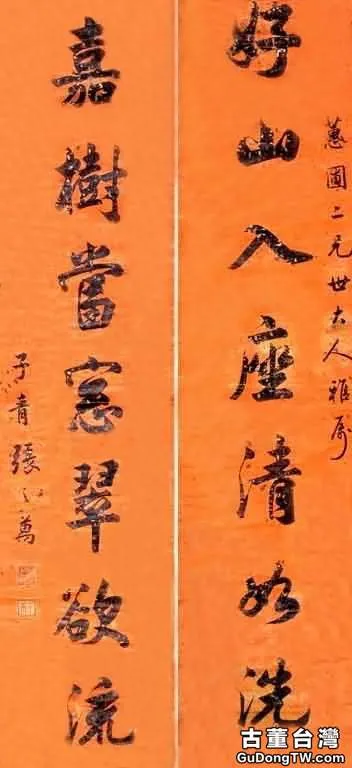 蕙圃二兄世大人雅属
好山入座清如洗
嘉樹當窓翠欲流
子青張之萬
古董台灣
GuDongTW.com